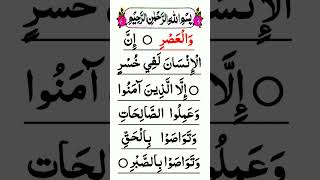 بِسْمِ اللهِ الرَّحْمٰنِ الرَّحِيْمِ
وَالْعَصْرِ ○ إِنَّ
الْإِنْسَانَ لَفِي خُسْرٍ
○ إِلَّا الَّذِينَ آمَنُوا
وَعَمِلُوا الصَّالِحَاتِ
وَتَوَاصَوْا بِالْحَقِّ
وَتَوَاصَوْا بِالصَّبْرِ ○